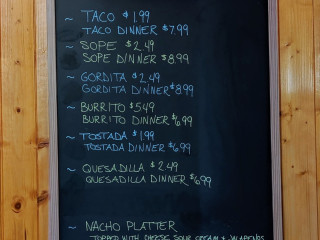 ~ TACO $1.99
TACO DINNER $7.99
~ SOPE $2.49
SOPE DINNER $8.99
~ GORDITA $2.49
GORDITA DINNER $8.99
~ BURRITO $5.49
BURRITO DINNER $6.99
~ TOSTADA $1.99
TOSTADA DINNER $6.99
~ QUESADILLA $2.49
QUESADILLA DINNER $6.99
~ NACHO PLATTER
TOPPED WITH CHEESE, SOUR CREAM + JALAPENOS